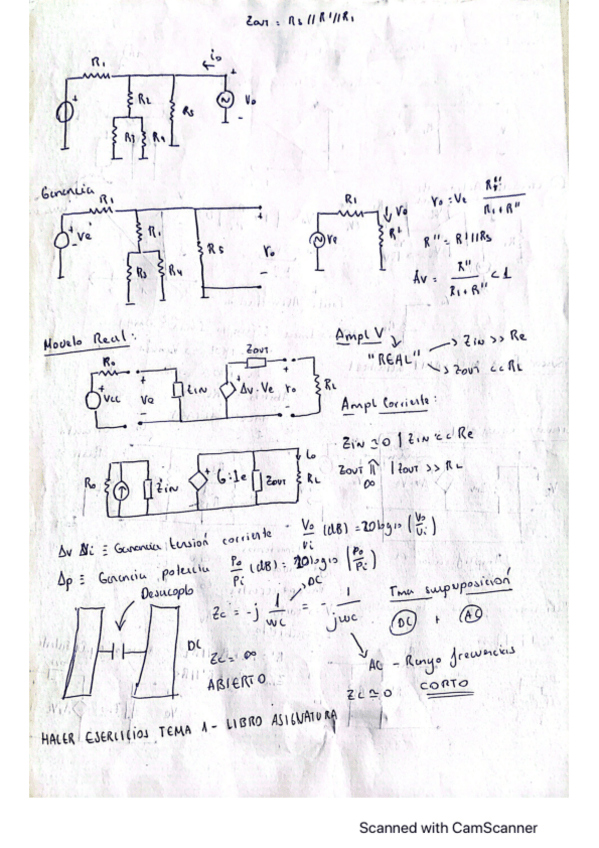 Zout = R5 // R' // R1
R1
io
+
R2
R5
Vo
-
R3
R4
Ganancia
R1
+
Ve
-
R1
R3
R4
R5
Vo
-
R1
Ve
Vo
R'
Vo = Ve R'' / R1 + R''
R'' = R' // R5
Av = R'' / R1 + R'' < 1
Modelo Real:
Ro
+
Vcc
+
Ve
-
Zin
Zout
Av · Ve
+
Vo
-
RL
Ampl V
"REAL"
→ Zin >> Re
→ Zout << RL
Ampl Corriente:
Zin ≃ 0 | Zin << Re
Zout ⇑ ∞ | Zout >> RL
Ro
Zin
+
G · Ie
Zout
Io
RL
Δv Δi ≡ Ganancia tensión corriente - Vo/Vi (dB) = 20 log10 (Vo/Vi)
Δp ≡ Ganancia potencia Po/Pi (dB) = 10 log10 (Po/Pi)
Desacoplo
DC
Zc = -j 1/wC = - 1/jwC
Tma superposición
DC + AC
DC
Zc = ∞
ABIERTO
AC - Rango frecuencias
Zc ≃ 0 CORTO
HACER EJERCICIOS TEMA 1 - LIBRO ASIGNATURA
Scanned with CamScanner